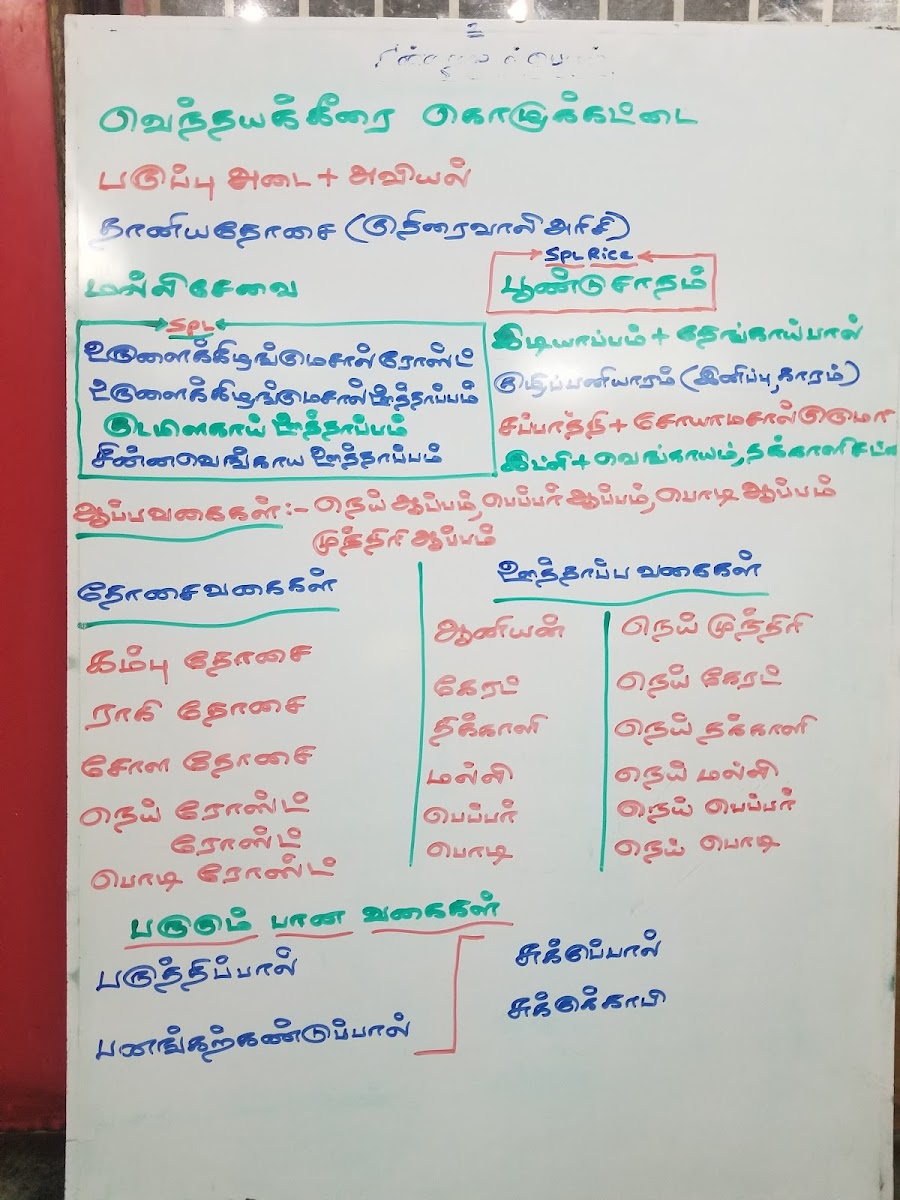 வெந்தயக்கீரை கொழுக்கட்டை
பருப்பு அடை + அவியல்
தானியதோசை (குதிரைவாலி அரிசி)
Spl Rice
மல்லி சேவை
பூண்டு சாதம்
Spl
உருளைக்கிழங்குமசால் ரோஸ்ட்
உருளைக்கிழங்குமசால் ஊத்தாப்பம்
குடமிளகாய் ஊத்தாப்பம்
சின்னவெங்காய ஊத்தாப்பம்
இடியாப்பம் + தேங்காய்பால்
குழிப்பனியாரம் (இனிப்பு, காரம்)
சப்பாத்தி + சோயாமசால் குருமா
இட்லி + வெங்காயம், தக்காளி
ஆப்பவகைகள் :- நெய் ஆப்பம், பெப்பர் ஆப்பம், பொடி ஆப்பம்
முந்திரி ஆப்பம்
தோசைவகைகள்
கம்பு தோசை
ராகி தோசை
சோள தோசை
நெய் ரோஸ்ட்
ரோஸ்ட்
பொடி ரோஸ்ட்
ஊத்தாப்ப வகைகள்
ஆனியன்
கேரட்
தக்காளி
மல்லி
பெப்பர்
பொடி
நெய் முந்திரி
நெய் கேரட்
நெய் தக்காளி
நெய் மல்லி
நெய் பெப்பர்
நெய் பொடி
பருகும் பான வகைகள்
பருத்திப்பால்
பனங்கற்கண்டுப்பால்
சுக்குப்பால்
சுக்குக்காபி